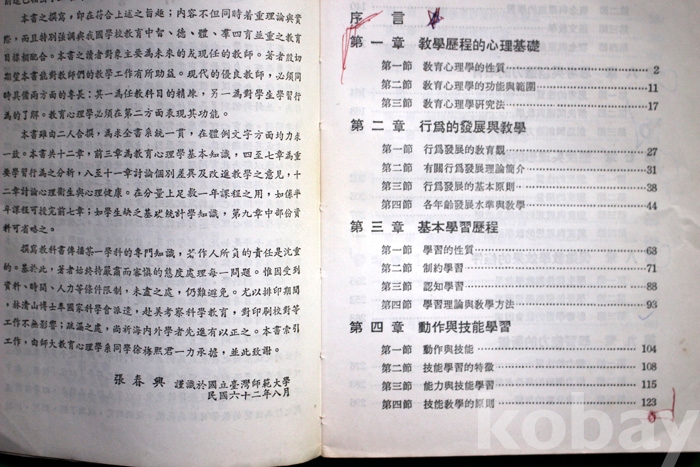 本書之撰寫，即在符合上述之旨趣；內容不但同時着重理論與實
際，而且特別強調與我國學校教育中智、德、體、羣四育並重之教育
目標相配合。本書之讀者對象主要為未來的或現任的教師。著者殷切
期望本書也對教師們的教學工作有所助益。現代的優良教師，必須同
時具備兩方面的專長：其一為任教科目的精練，另一為對學生學習行
為的了解。教育心理學必須在第二方面表現其功能。
本書雖由二人合撰，為求全書系統一貫，在體例文字方面均力求
一致。本書共十二章，前三章為教育心理學基本知識，四至七章為重
要學習行為之分析，八至十一章討論個別差異及改進教學之意見，十
二章討論心理衛生與心理健康。在分量上足敷一年課程之用，如係半
年課程可授完前七章；如學生缺乏基礎統計學知識，第九章中部份資
料可省略之。
撰寫教科書傳播某一學科的專門知識，著作人所負的責任是沈重
的。基於此，著者始終持嚴肅而審慎的態度處理每一問題。惟因受到
資料、時間、人力等條件限制，未盡之處，仍難避免。尤以排印期間
，林清山博士奉國家科學會派遣，赴美考察科學教育，對印刷校對等
工作不無影響；疏漏之處，尚祈海內外學者先進有以正之。本書索引
工作，由師大教育心理學系同學徐梅熙君一力承擔，並此致謝。
張春興 謹識於國立臺灣師範大學
民國六十二年八月
序 言
第一章 教學歷程的心理基礎
第一節 教育心理學的性質 2
第二節 教育心理學的功能與範圍 11
第三節 教育心理學研究法 17
第二章 行爲的發展與教學
第一節 行爲發展的教育觀 27
第二節 有關行爲發展理論簡介 31
第三節 行爲發展的基本原則 38
第四節 各年齡發展水準與教學 44
第三章 基本學習歷程
第一節 學習的性質 63
第二節 制約學習 71
第三節 認知學習 88
第四節 學習理論與教學方法 93
第四章 動作與技能學習
第一節 動作與技能 104
第二節 技能學習的特徵 108
第三節 能力與技能學習 115
第四節 技能教學的原則 123
kobay